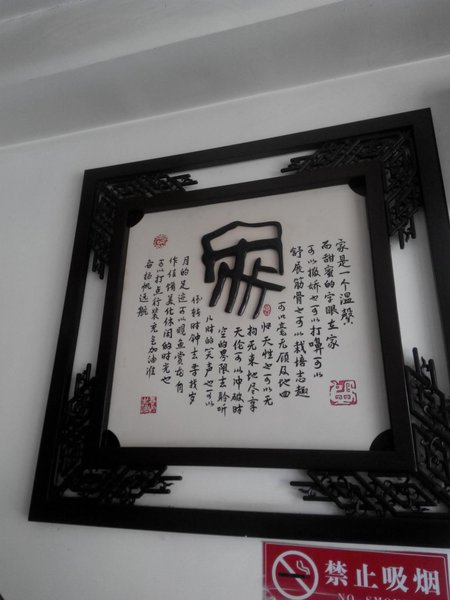 家
家是一个温馨
而甜蜜的字眼在家
可以撒娇也可以打嚊可以
舒展筋骨也可以栽培志趣
可以毫无顾及地回
归天性也可以无
拘无束地尽享
天伦可以冲破时
空的界限去聆听
儿时的笑声也可以
倒转时钟去寻找岁
月的足迹可以观鱼赏花
作佳 美化休闲的时光也
可以打点行装充包加油准
备扬帆远航
禁止吸烟
NO SMOK